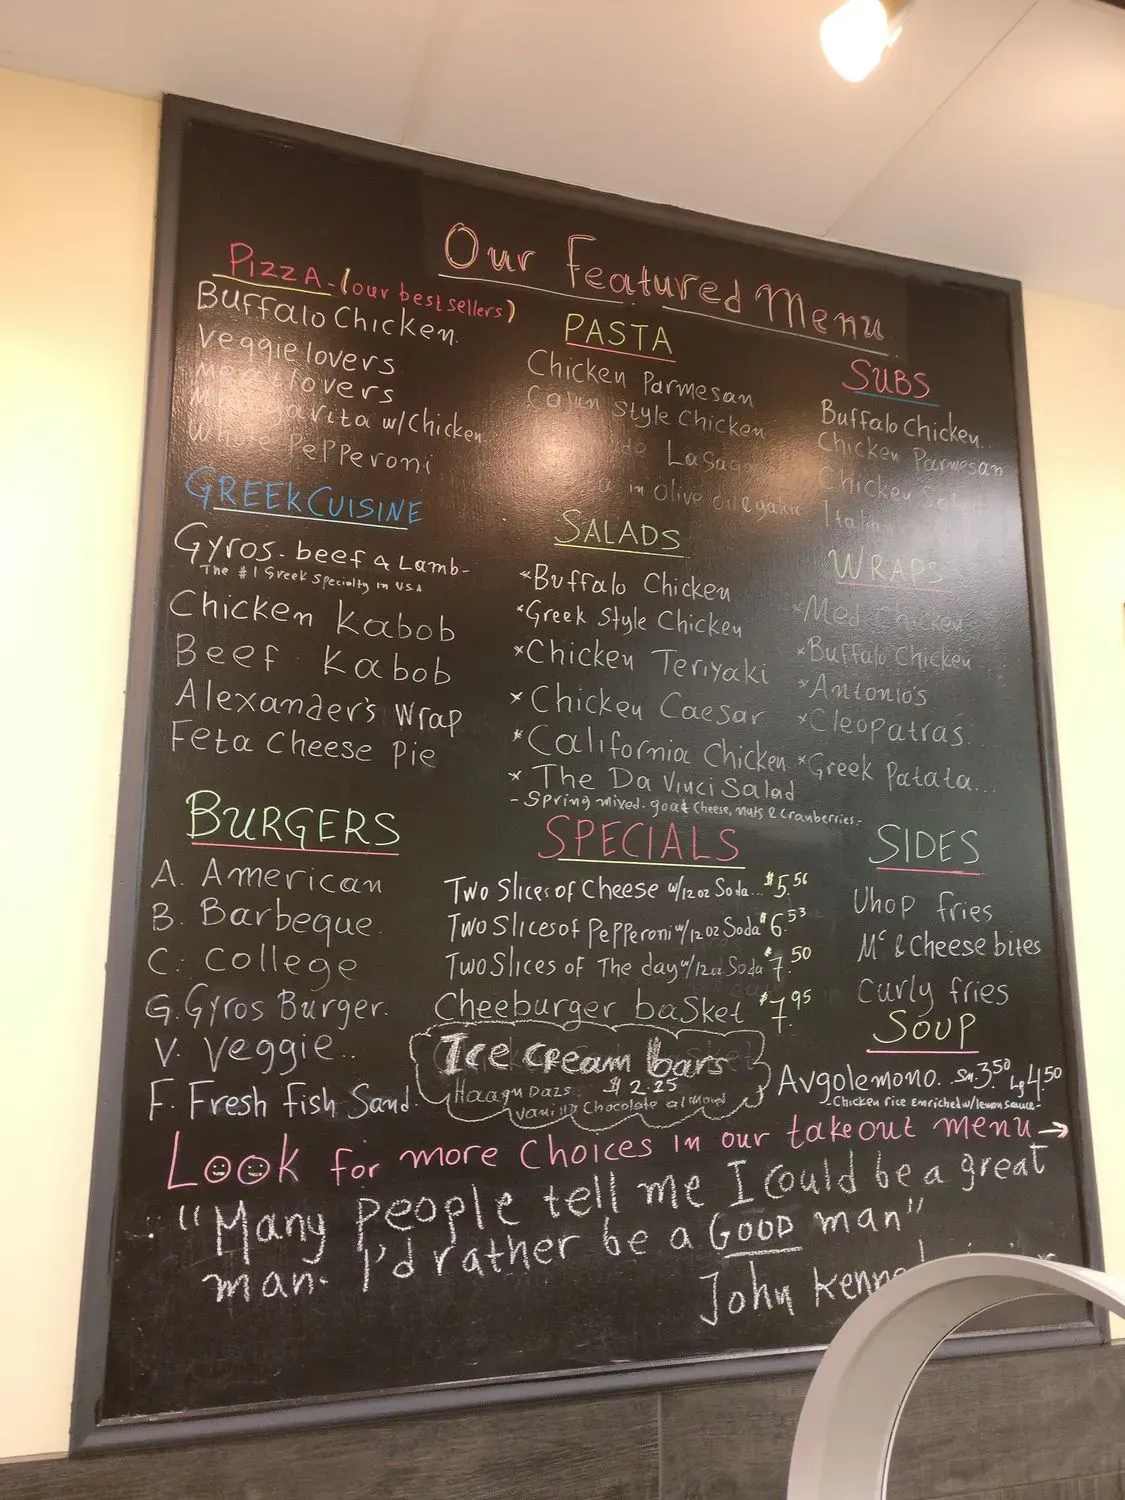 Our Featured Menu
PIZZA - (our best sellers)
Buffalo Chicken.
Veggie lovers
Meat lovers
w/Chicken
Pepperoni
GREEK CUISINE
Gyros - beef & Lamb -
The #1 Greek Specialty in USA
Chicken Kabob
Beef Kabob
Alexander's Wrap
Feta Cheese Pie
BURGERS
A. American
B. Barbeque
C. College
G. Gyros Burger.
V. Veggie..
F. Fresh Fish Sand.
PASTA
Chicken Parmesan
Cajun Style Chicken
in Olive oil & garlic
SALADS
*Buffalo Chicken
*Greek Style Chicken
*Chicken Teriyaki
*Chicken Caesar
*California Chicken
*The Da Vinci Salad
- Spring mixed - goat Cheese, nuts & Cranberries -
SPECIALS
Two Slices of Cheese w/12 oz Soda... $5.56
Two Slices of Pepperoni w/12 oz Soda $6.53
Two Slices of The day w/12 oz Soda $7.50
Cheeburger basket $7.95
Ice cream bars
Haagn Dazs $2.25
Vanilla Chocolate almond
SUBS
Buffalo Chicken..
Chicken Parmesan
Chicken
WRAPS
*Med Chicken
*Buffalo Chicken
*Antonio's
*Cleopatras..
*Greek Patata...
SIDES
Uhop fries
Mc & Cheese bites
Curly fries
SOUP
Avgolemono. Sm. 3.50 Lg 4.50
- Chicken rice Enriched w/lemon Sauce -
Look for more Choices in our takeout menu →
"Many people tell me I could be a great
man. I'd rather be a GOOD man"
John